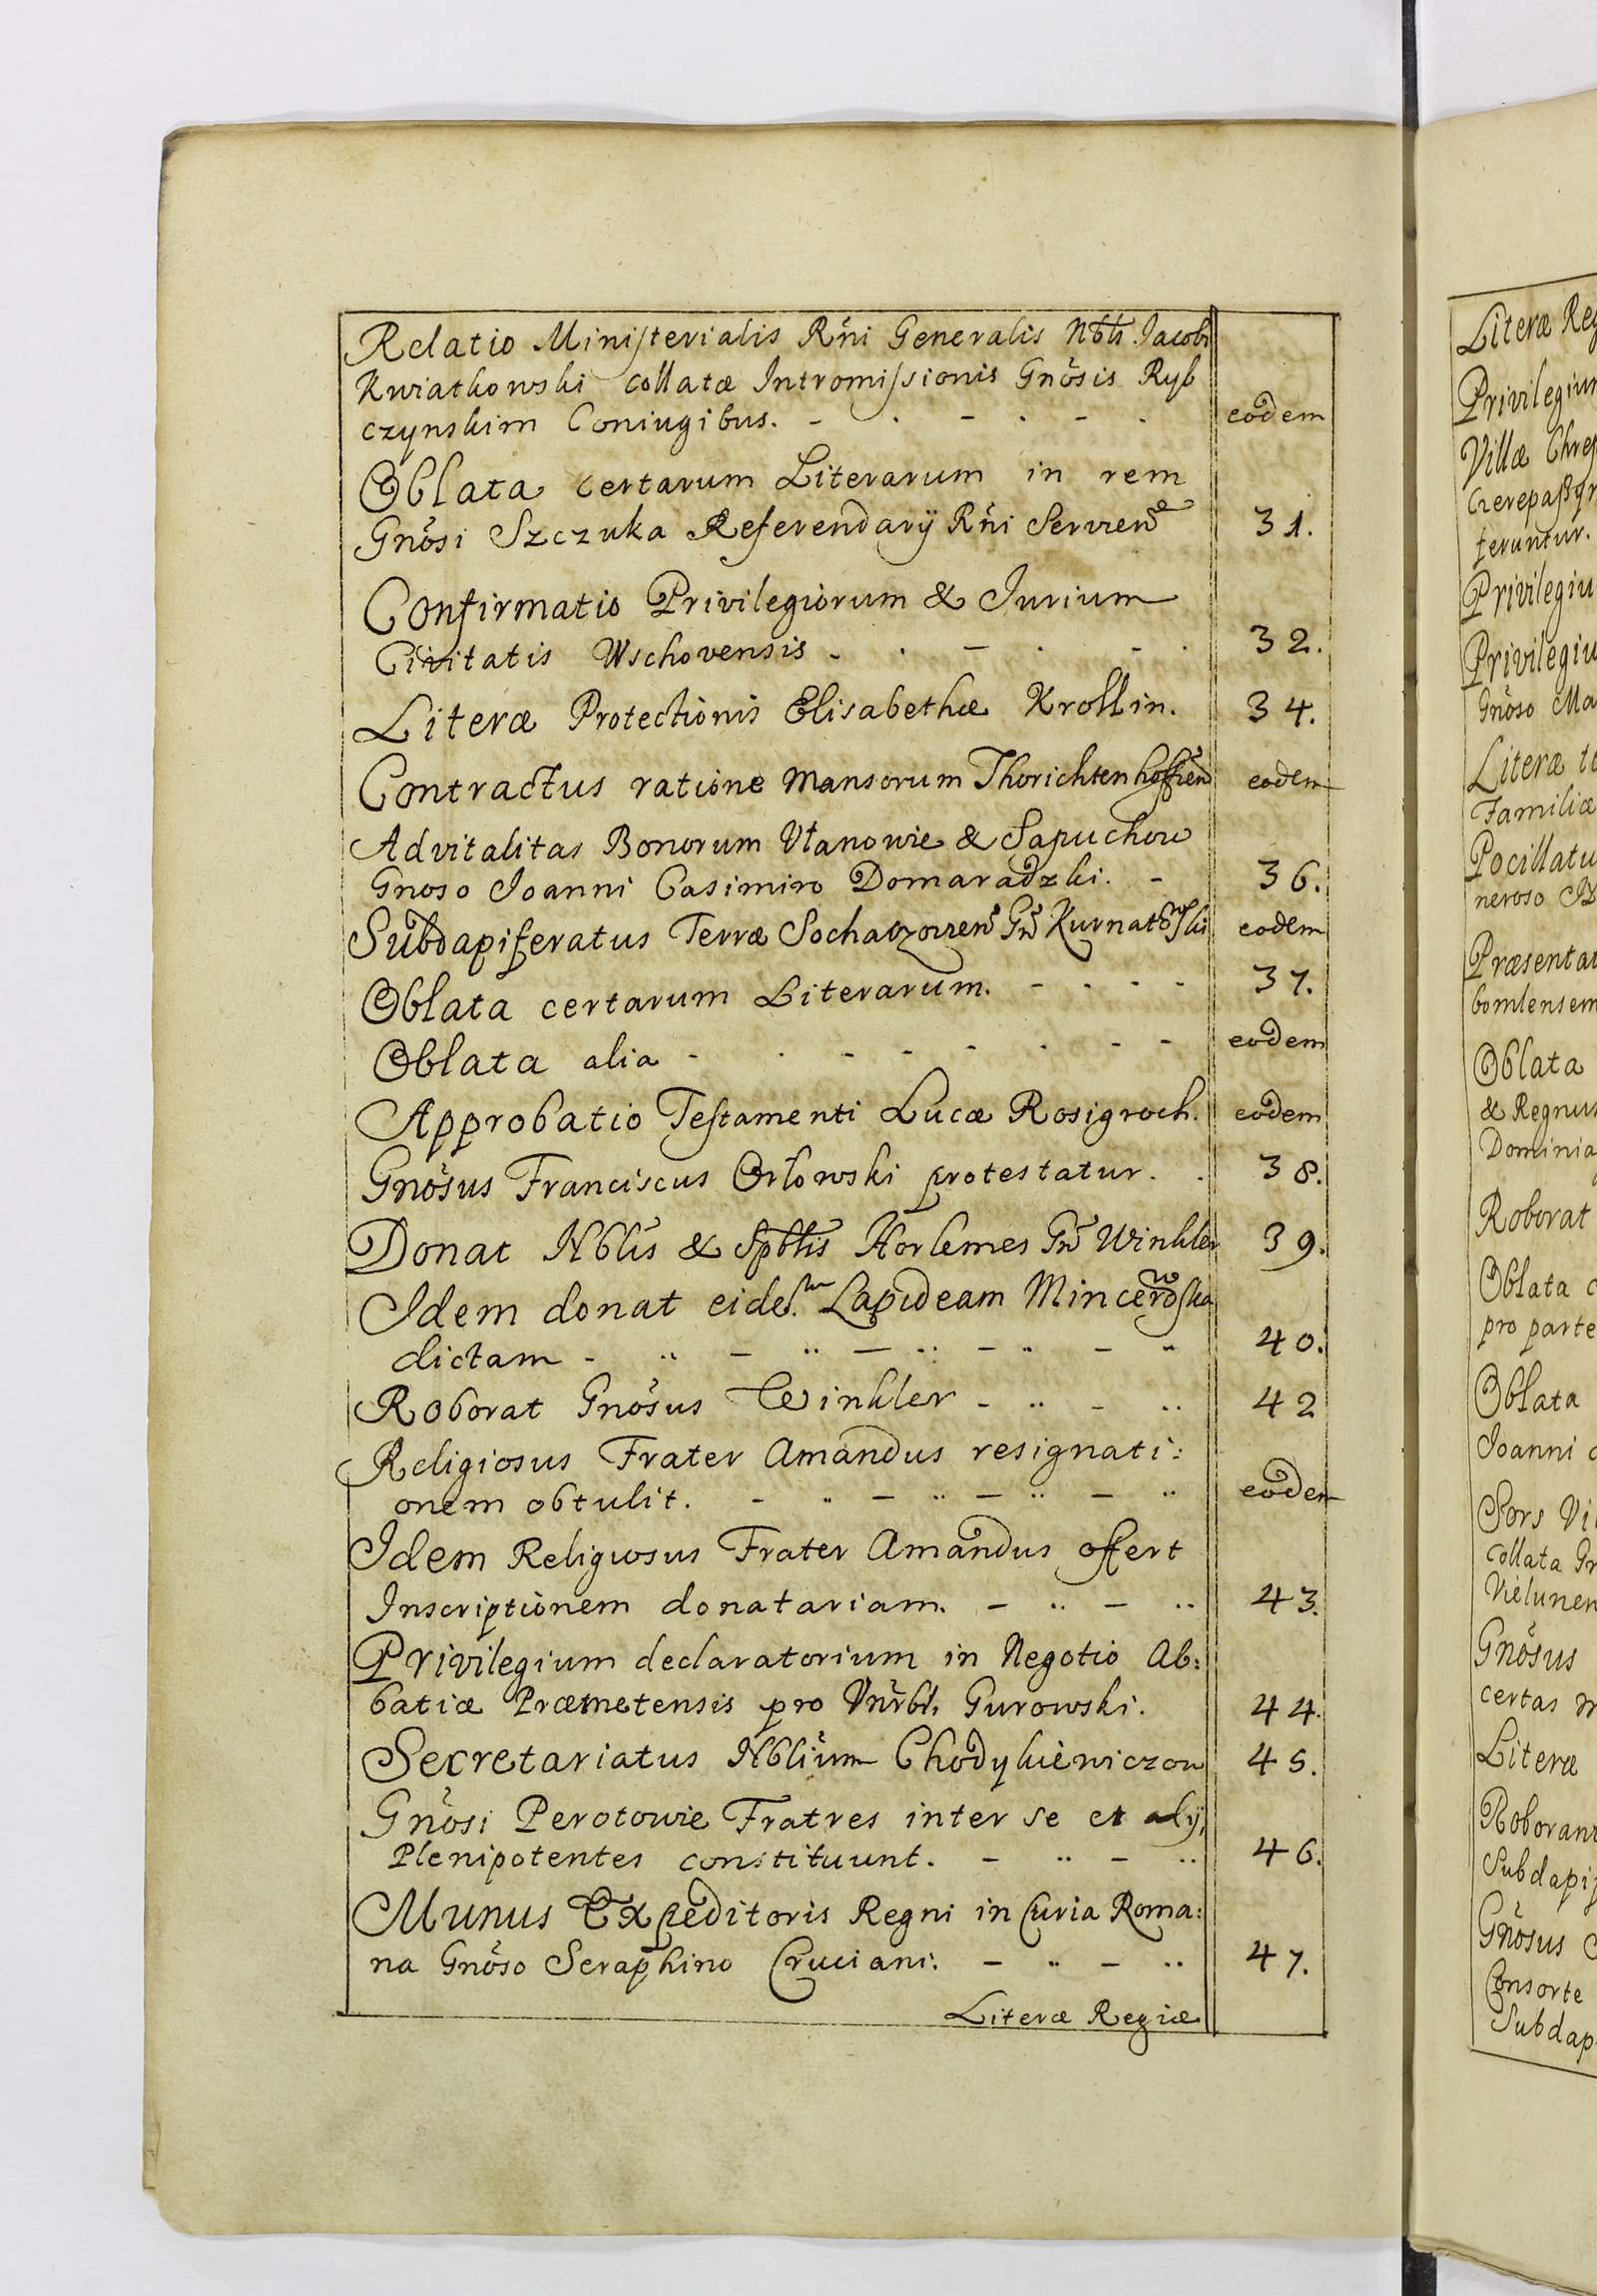 Relatio Ministerialis Rñi Generalis Nblis Jacobi
Kwiatkowski collatæ Intromissionis Gnösis Ryb
czynskim Coniugibus. - . - . - . eodem
Oblata certarum Literarum in rem
Gnösi Szczuka Referendarÿ Rñi Servien 31.
Confirmatio Privilegiorum & Jurium
Civitatis Wschovensis - . - . - . 32.
Literæ Protectionis Elisabethæ Krollin. 34.
Contractus ratione Mansorum Thorichtenhoffien eodem
Advitalitas Bonorum Vtanowie & Sapuchow
Gnoso Joanni Casimiro Domaradzki. - 36.
Subdapiferatus Terræ Sochaczovien Gn Kurnatowski eodem
Oblata certarum Literarum. - . - . - 37.
Oblata alia - . - - - . - - eodem
Approbatio Testamenti Lucæ Rosigroch. eodem
Gnösus Franciscus Orlowski protestatur. . 38.
Donat Nblis & Spblis Horlemes Gn Winkler 39.
Idem donat eidem Lapideam Mincerowska
dictam - .. - .. - .. - .. - .. 40.
Roborat Gnösus Winkler - .. - .. 42
Religiosus Frater Amandus resignati:
onem obtulit. - .. - .. - .. - .. eodem
Idem Religiosus Frater Amandus offert
Inscriptionem donatariam. - .. - .. 43.
Privilegium declaratorium in Negotio Ab:
batiæ Præmetensis pro Gurowski. 44.
Secretariatus Nblium Chodykiewiczow 45.
Gnösi Perotowie Fratres inter se et alÿ,
Plenipotentes constituunt. - .. - .. 46.
Munus Expeditoris Regni in Curia Roma:
na Gnöso Seraphino Cruciani. - .. - .. 47.
Literæ Regiæ
Literæ Reg
Privilegium
Villæ Chre
feruntur.
Privilegiu
Privilegiu
Gnöso Ma
Literæ
Familiæ
Pocillatu
neroso
Præsentat
bomlensem
Oblata
& Regnu
Dominia
Roborat
Oblata c
pro parte
Oblata
Joanni
Sors Vi
Collata Gn
Vielunen
Gnösus
certas
Literæ
Roborant
Subdapif
Gnösus
Consorte
Subdap